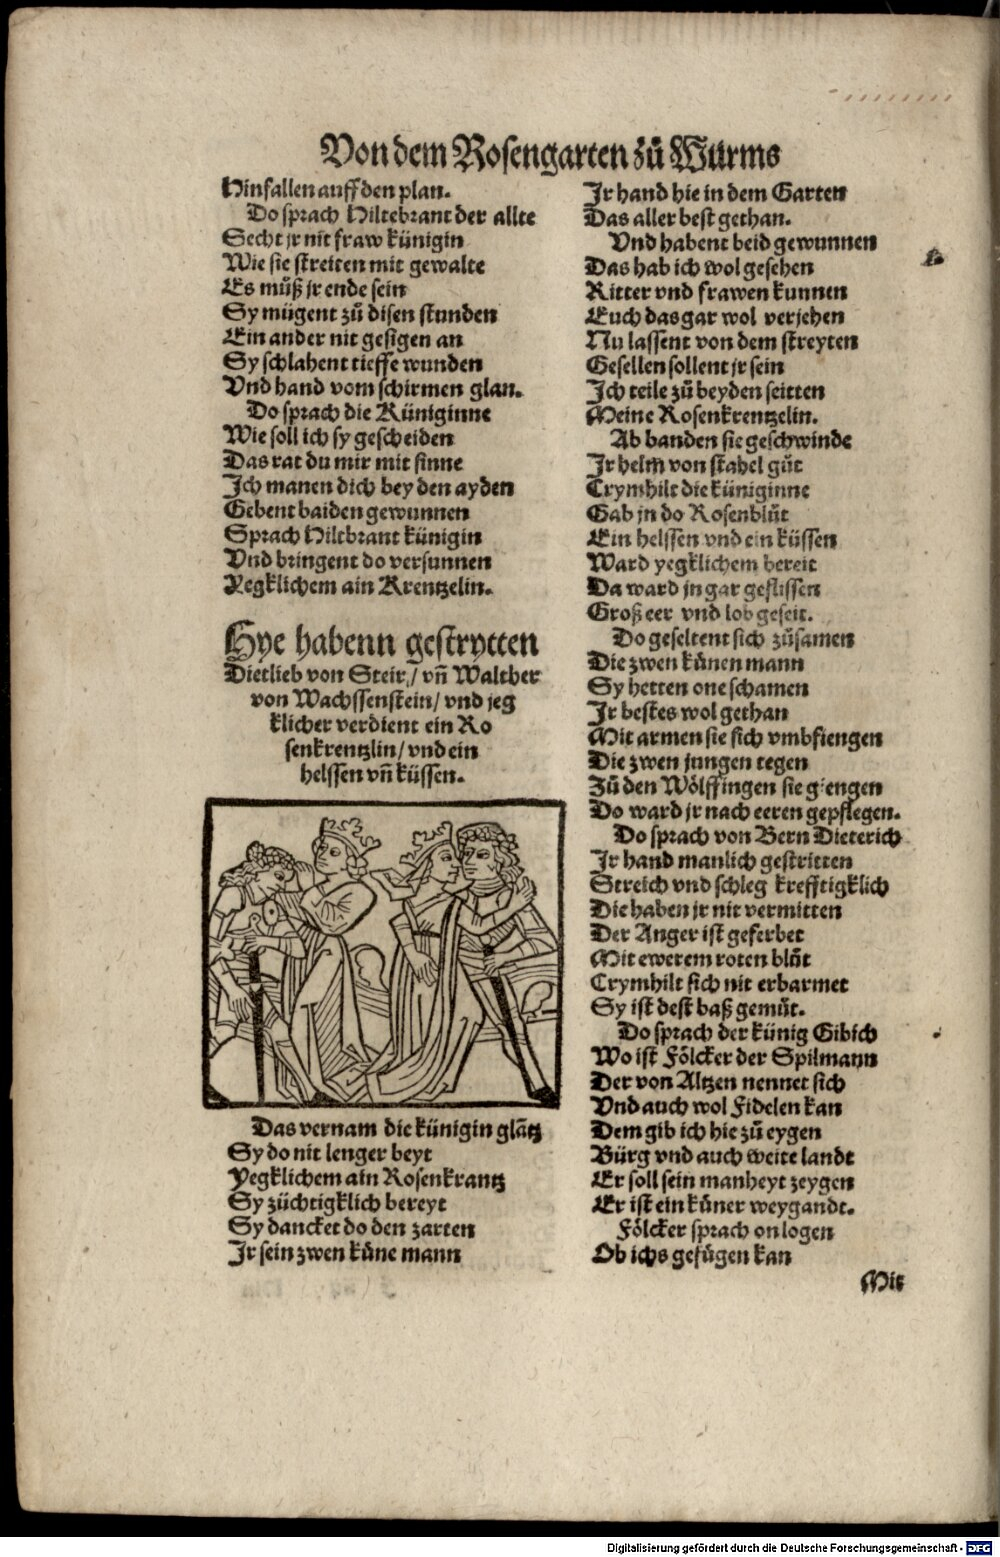 Von dem Rosengarten zů Wurms
Hinfallen auff den plan.
Do sprach Hiltebrant der allte
Secht jr nit fraw künigin
Wie sie streiten mit gewalte
Es můß jr ende sein
Sy mügent zů disen stunden
Ein ander nit gesigen an
Sy schlahent tieffe wunden
Vnd hand vom schirmen glan.
Do sprach die Küniginne
Wie soll ich sy gescheiden
Das rat du mir mit sinne
Ich manen dich bey den ayden
Gebent baiden gewunnen
Sprach Hiltbrant künigin
Vnd bringent do versunnen
Yegklichem ain Krentzelin.
Hye habenn gestrytten
Dietlieb von Steir/ vñ Walther
von Wachssenstein/ vnd jeg
klicher verdient ein Ro
senkrentzlin/ vnd ein
helssen vñ küssen.
Das vernam die künigin glãtz
Sy do nit lenger beyt
Yegklichem ain Rosenkrantz
Sy züchtigklich bereyt
Sy dancket do den zarten
Ir sein zwen küne mann
Ir hand hie in dem Garten
Das aller best gethan.
Vnd habent beid gewunnen
Das hab ich wol gesehen
Ritter vnd frawen kunnen
Euch das gar wol verjehen
Nu lassent von dem streyten
Gesellen sollent jr sein
Ich teile zů beyden seitten
Meine Rosenkrentzelin.
Ab banden sie geschwinde
Ir helm von stahel gůt
Crymhilt die küniginne
Gab jn do Rosenblůt
Ein helssen vnd ein küssen
Ward yegklichem bereit
Da ward jn gar geflissen
Groß eer vnd lob geseit.
Do geseltent sich zůsamen
Die zwen künen mann
Sy hetten one schamen
Ir bestes wol gethan
Mit armen sie sich vmbfiengen
Die zwen jungen tegen
Zů den Wölffingen sie giengen
Do ward jr nach eeren gepflegen.
Do sprach von Bern Dieterich
Ir hand manlich gestritten
Streich vnd schleg krefftigklich
Die haben jr nit vermitten
Der Anger ist geferbet
Mit ewerem roten blůt
Crymhilt sich nit erbarmet
Sy ist dest baß gemůt.
Do sprach der künig Gibich
Wo ist Fölcker der Spilmann
Der von Altzen nennet sich
Vnd auch wol Fidelen kan
Dem gib ich hie zů eygen
Bürg vnd auch weite landt
Er soll sein manheyt zeygen
Er ist ein küner weygandt.
Fölcker sprach on logen
Ob ichs gefůgen kan
Mit
Digitalisierung gefördert durch die Deutsche Forschungsgemeinschaft - DFG